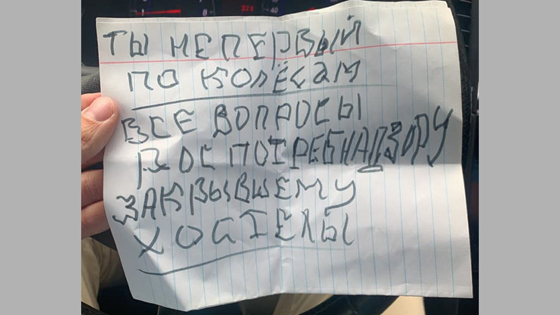 ТЫ НЕ ПЕРВЫЙ
ПО КОЛЁСАМ
ВСЕ ВОПРОСЫ
РОСПОТРЕБНАДЗОРУ
ЗАКРЫВШЕМУ
ХОСТЕЛЫ